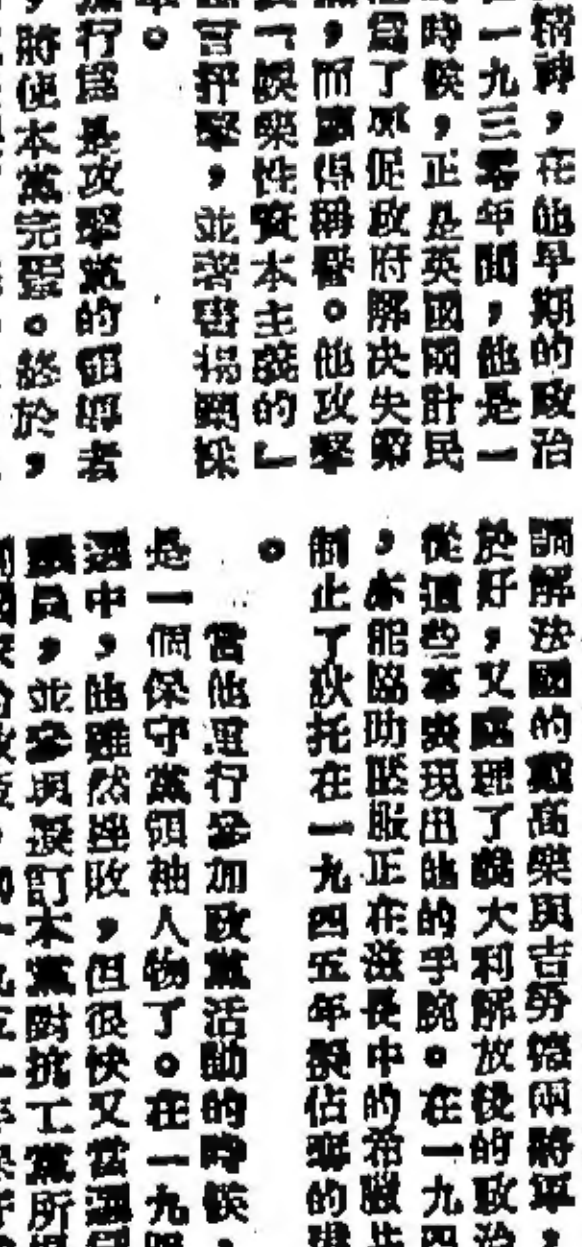 精神，在他早期的政治
一九三零年間，他是一
時候，正是英國國計民
了敦促政府解決失業
，而贏得稱譽。他攻擊
「娛樂性資本主義的』
官抨擊，並著書揭
。
行為是攻擊黨的領導者
將使本黨完蛋。終於，
調解法國的戴高樂與吉勞德兩將軍，
於好，又處理了意大利解放後的政治
從這些事裏現出他的手腕。在一九四
，亦能協助壓服正在滋長中的希臘共
制止了狄托在一九四五年擬佔奪的
。
當他重行參加政黨活動的時候，
是一個保守黨領袖人物了。在一九四
選中，他雖然挫敗，但很快又當選
議員，並參與擬訂本黨對抗工黨所